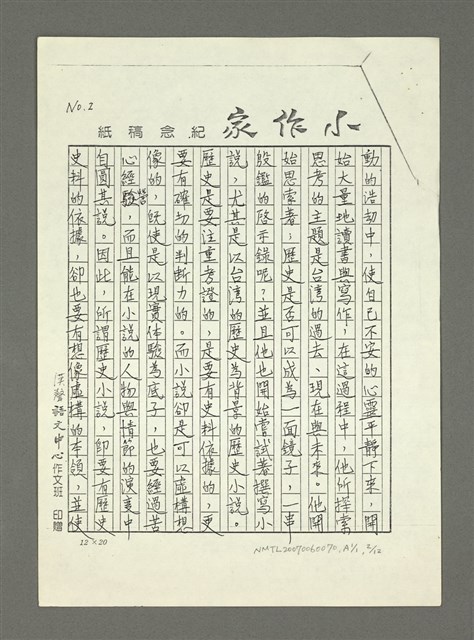 No. 2
小作家 紀念稿紙
動的浩劫中，使自己不安的心靈平靜下來，開
始大量地讀書與寫作，在這過程中，他所探索
思考的主題是台湾的過去、現在與未來。他開
始思索着，歷史是否可以成為一面鏡子，一串
殷鑑的啓示錄呢？並且他也開始嘗試着撰寫小
說，尤其是以台湾的歷史為背景的歷史小説。
歷史是要注重考證的，是要有史料依據的，更
要有確切的判斷力的。而小説卻是可以虛構想
像的，既使是以現實体驗為底子，也要經過苦
心經營，而且能在小說的人物與情節的演変中
自圓其説。因此，所謂歷史小說，即要有歷史
史料的依據，卻也要有想像虛構的本領，並使
漢聲語文中心作文班 印贈
12×20
NMTL20070060070, A1/1, 2/12